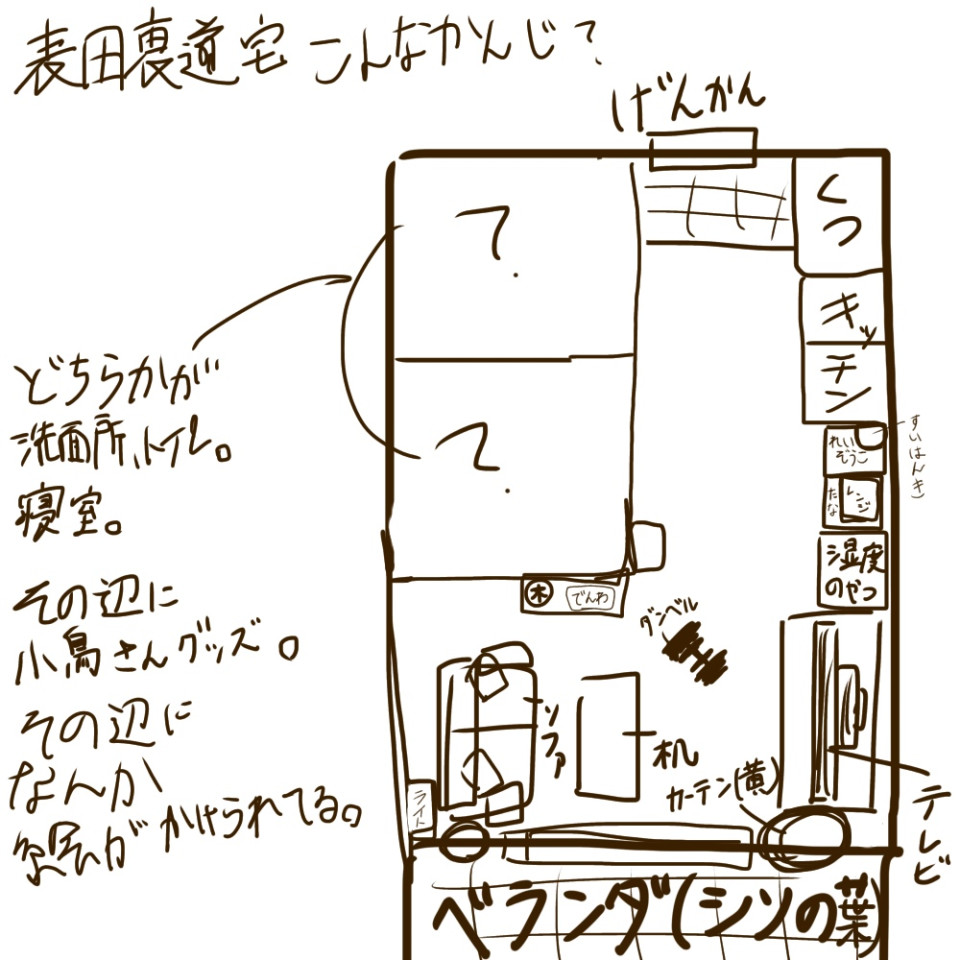 表田裏道宅 こんなかんじ?
げんかん
くつ
?
キッ
チン
どちらかが
洗面所、トイレ。
寝室。
?
すいはんき
れい
ぞうこ
たな
レンジ
湿度
のやつ
木
でんわ
ダンベル
その辺に
小鳥さんグッズ。
ソファ
机
カーテン(黄)
その辺に
なんか
がかけられてる。
ライト
テレビ
ベランダ(シソの葉)